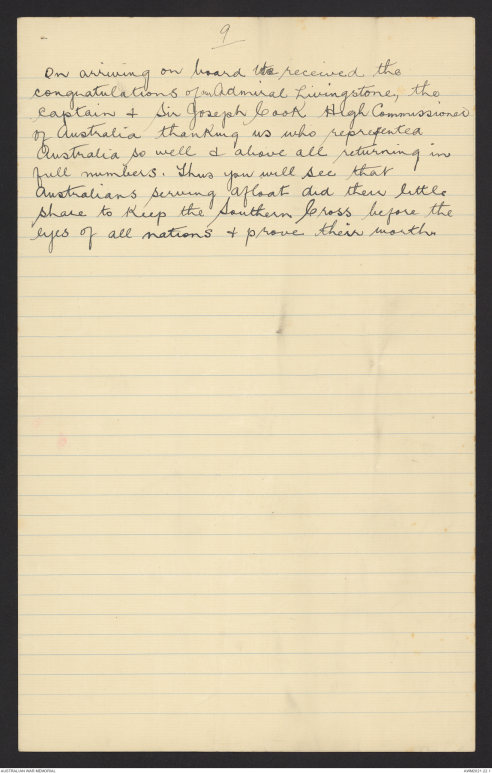 9
On arriving on board we received the
congratulations of Admiral Livingstone, the
Captain & Sir Joseph Cook High Commissioner
of Australia thanking us who represented
Australia so well & above all returning in
full numbers. Thus you will see that
Australians serving afloat did their little
share to keep the Southern Cross before the
eyes of all nations & prove their worth.
AUSTRALIAN WAR MEMORIAL